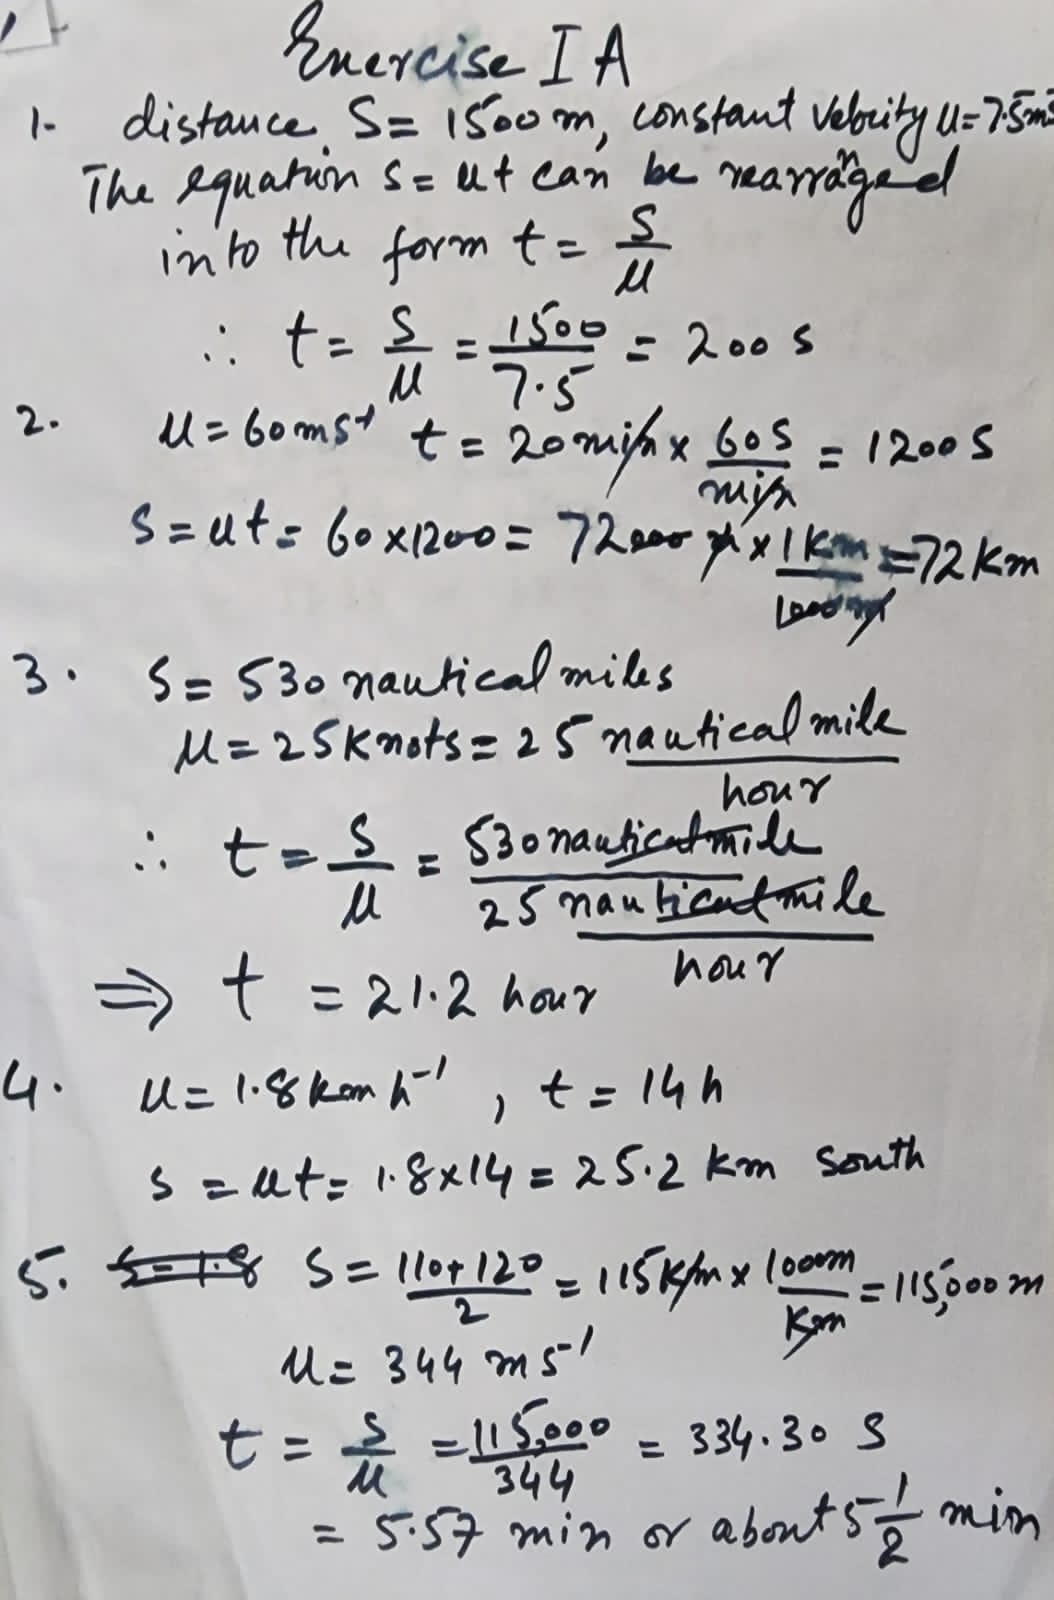 Exercise I A
1- distance S= 1500 m, constant velocity u= 7.5ms
The equation s= ut can be rearranged
into the form t= S/u
∴ t= S/u = 1500/7.5 = 200 s
2. u= 60 ms⁻¹ t = 20 min x 60s/min = 1200 s
S = ut = 60 x1200 = 72000 m x 1 km/1000 m = 72 km
3. S= 530 nautical miles
u= 25 knots = 25 nautical mile/hour
∴ t = S/u = 530 nautical mile / 25 nautical mile/hour
⇒ t = 21.2 hour
4. u= 1.8 km h⁻¹, t = 14 h
s = ut = 1.8x14 = 25.2 km south
5. S=1.8 S= 110+120/2 = 115 km x 1000m/km = 115,000 m
u= 344 ms⁻¹
t = S/u = 115,000/344 = 334.30 s
= 5.57 min or about 5 1/2 min